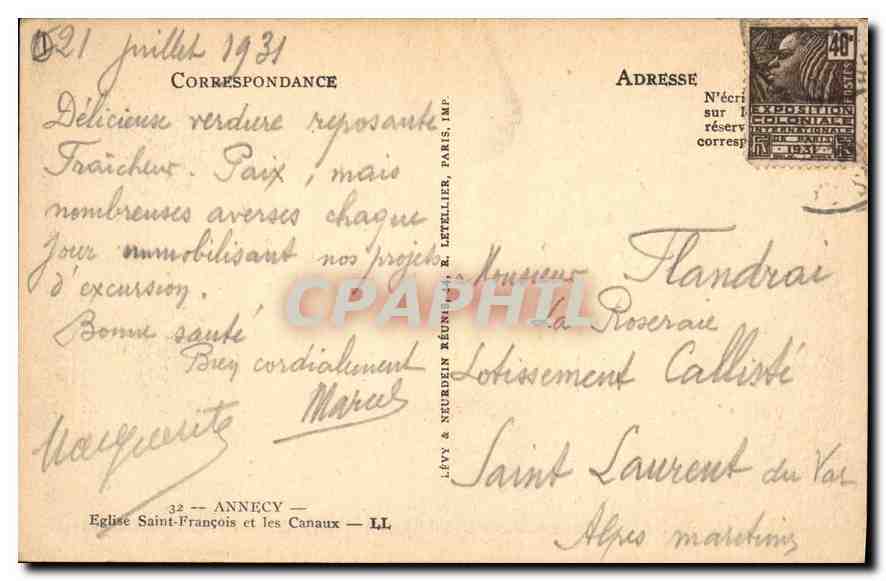 21 juillet 1931
CORRESPONDANCE
Délicieuse verdure reposante
Fraîcheur. Paix, mais
nombreuses averses chaque
jour immobilisant nos projets
d'excursion.
Bonne santé
Bien cordialement
Marcel
Marguerite
32 -- ANNECY --
Eglise Saint-François et les Canaux -- LL
LÉVY & NEURDEIN RÉUNIS, 44, R. LETELLIER, PARIS, IMP.
ADRESSE
N'écri
sur l
réserv
corresp
40c
POSTES
EXPOSITION
COLONIALE
INTERNATIONALE
DE PARIS
1931
Monsieur Flandrai
La Roseraie
Lotissement Callisté
Saint Laurent du Var
Alpes maritimes
CPAPHIL